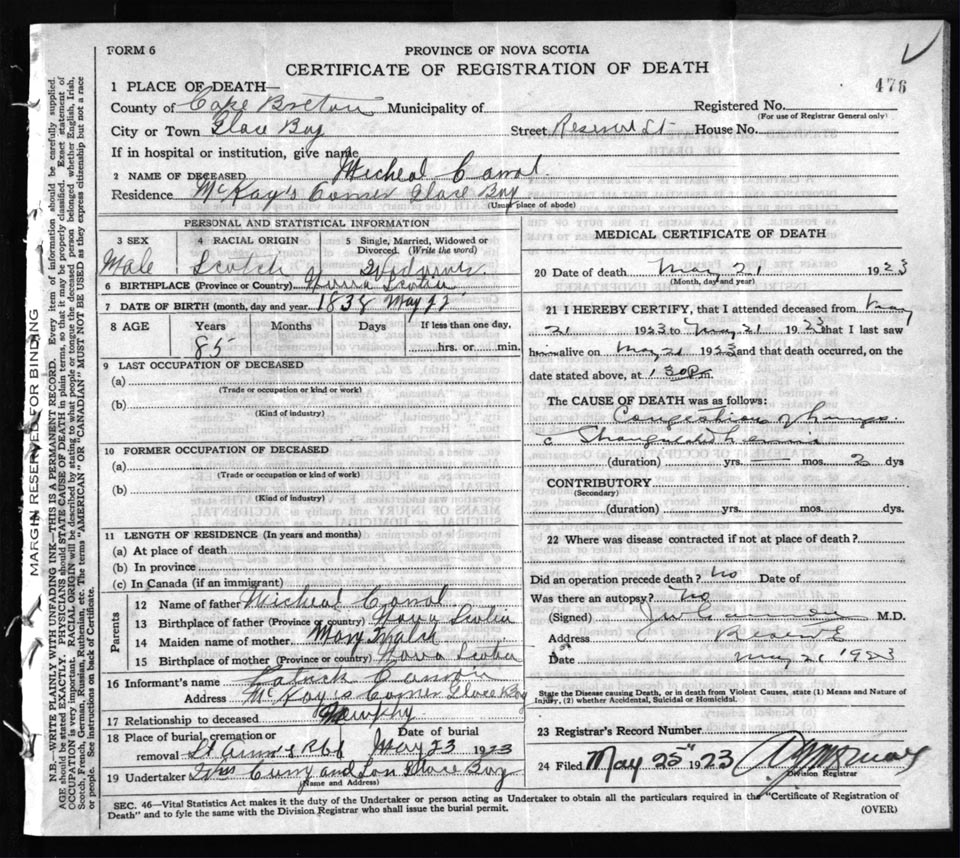 FORM 6
PROVINCE OF NOVA SCOTIA
CERTIFICATE OF REGISTRATION OF DEATH
476
1 PLACE OF DEATH—
County of Cape Breton Municipality of
Registered No.
(For use of Registrar General only)
City or Town Glace Bay Street Reserve St House No.
If in hospital or institution, give name
2 NAME OF DECEASED Micheal
Residence McKay's Corner Glace Bay
(Usual place of abode)
PERSONAL AND STATISTICAL INFORMATION
3 SEX
Male
4 RACIAL ORIGIN
Scotch
5 Single, Married, Widowed or Divorced. (Write the word)
6 BIRTHPLACE (Province or Country) Nova Scotia
7 DATE OF BIRTH (month, day and year) 1838 May 22
8 AGE Years Months Days If less than one day,
85 hrs. or min.
9 LAST OCCUPATION OF DECEASED
(a)
(Trade or occupation or kind or work)
(b)
(Kind of industry)
10 FORMER OCCUPATION OF DECEASED
(a)
(Trade or occupation or kind of work)
(b)
(Kind of industry)
11 LENGTH OF RESIDENCE (In years and months)
(a) At place of death
(b) In province
(c) In Canada (if an immigrant)
Parents
12 Name of father Micheal
13 Birthplace of father (Province or country) Nova Scotia
14 Maiden name of mother Mary Walsh
15 Birthplace of mother (Province or country) Nova Scotia
16 Informant's name Patrick
Address McKay's Corner Glace Bay
17 Relationship to deceased
18 Place of burial, cremation or removal St Ann's Date of burial May 23 1923
19 Undertaker Curry and Son Glace Bay
(Name and Address)
MEDICAL CERTIFICATE OF DEATH
20 Date of death May 21 1923
(Month, day and year)
21 I HEREBY CERTIFY, that I attended deceased from May
21 1923 to May 21 1923 that I last saw
him alive on May 21 1923 and that death occurred, on the
date stated above, at 1 30 Pm
The CAUSE OF DEATH was as follows:
Congestion of Lungs
c Strangulated Hernia
(duration) yrs. mos. 2 dys
CONTRIBUTORY
(Secondary)
(duration) yrs. mos. dys.
22 Where was disease contracted if not at place of death?
Did an operation precede death? No Date of
Was there an autopsy? No
(Signed) M.D.
Address Reserve
Date May 21 1923
State the Disease causing Death, or in death from Violent Causes, state (1) Means and Nature of
Injury, (2) whether Accidental, Suicidal or Homicidal.
23 Registrar's Record Number
24 Filed May 25th 1923
Division Registrar
SEC. 46—Vital Statistics Act makes it the duty of the Undertaker or person acting as Undertaker to obtain all the particulars required in the "Certificate of Registration of
Death" and to fyle the same with the Division Registrar who shall issue the burial permit.
(OVER)
MARGIN RESERVED FOR BINDING
N.B.—WRITE PLAINLY WITH UNFADING INK—THIS IS A PERMANENT RECORD. Every item of information should be carefully supplied.
AGE should be stated EXACTLY. PHYSICIANS should STATE CAUSE OF DEATH in plain terms, so that it may be properly classified. Exact statement of
OCCUPATION is very important. RACIAL ORIGIN will be described by stating to what people or tongue the deceased person belonged, whether English, Irish,
Scotch, French, German, Russian, Ruthenian, etc. The terms "AMERICAN" OR "CANADIAN" MUST NOT BE USED as they express citizenship but not a race
or people. See instructions on back of Certificate.